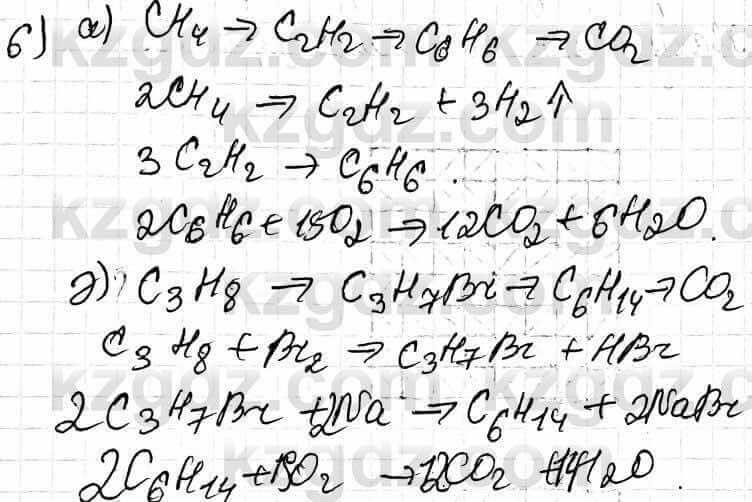 6) а) CH4 → C2H2 → C6H6 → CO2
2CH4 → C2H2 + 3H2↑
3 C2H2 → C6H6.
2C6H6 + 15O2 → 12CO2 + 6H2O.
ә) C3H8 → C3H7Br → C6H14 → CO2
C3H8 + Br2 → C3H7Br + HBr
2C3H7Br + 2Na → C6H14 + 2NaBr
2C6H14 + 19O2 → 12CO2 + 14H2O.